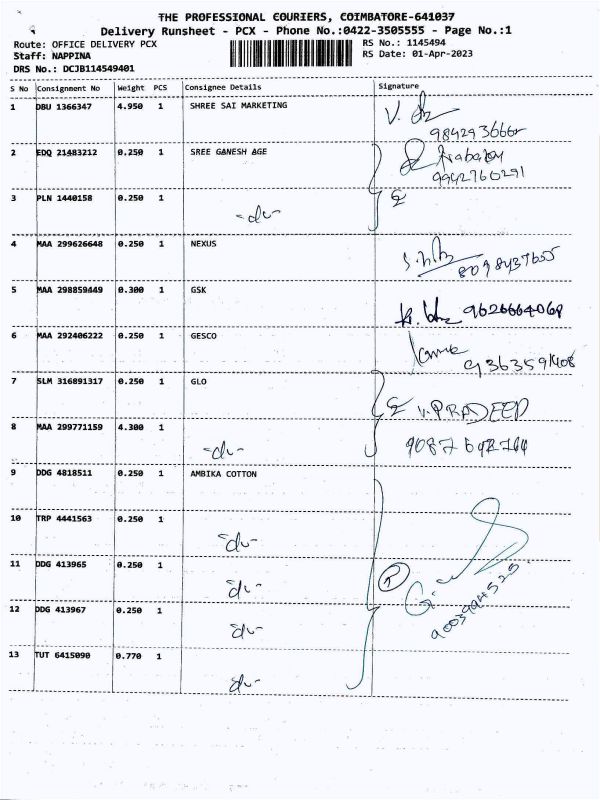 THE PROFESSIONAL COURIERS, COIMBATORE-641037
Delivery Runsheet - PCX - Phone No.:0422-3505555 - Page No.:1
Route: OFFICE DELIVERY PCX
Staff: NAPPINA
DRS No.: DCJB114549401
RS No.: 1145494
RS Date: 01-Apr-2023
S No Consignment No Weight PCS Consignee Details Signature
1 DBU 1366347 4.950 1 SHREE SAI MARKETING
2 EDQ 21483212 0.250 1 SREE GANESH AGE
9942760291
3 PLN 1440158 0.250 1
-do-
4 MAA 299626648 0.250 1 NEXUS
8098437655
5 MAA 298859449 0.300 1 GSK
9626664068
6 MAA 292406222 0.250 1 GESCO
9363591408
7 SLM 316891317 0.250 1 GLO
V.PRADEEP
8 MAA 299771159 4.300 1
-do-
9 DDG 4818511 0.250 1 AMBIKA COTTON
10 TRP 4441563 0.250 1
-do-
11 DDG 413965 0.250 1
-do-
12 DDG 413967 0.250 1
-do-
13 TUT 6415090 0.770 1
-do-